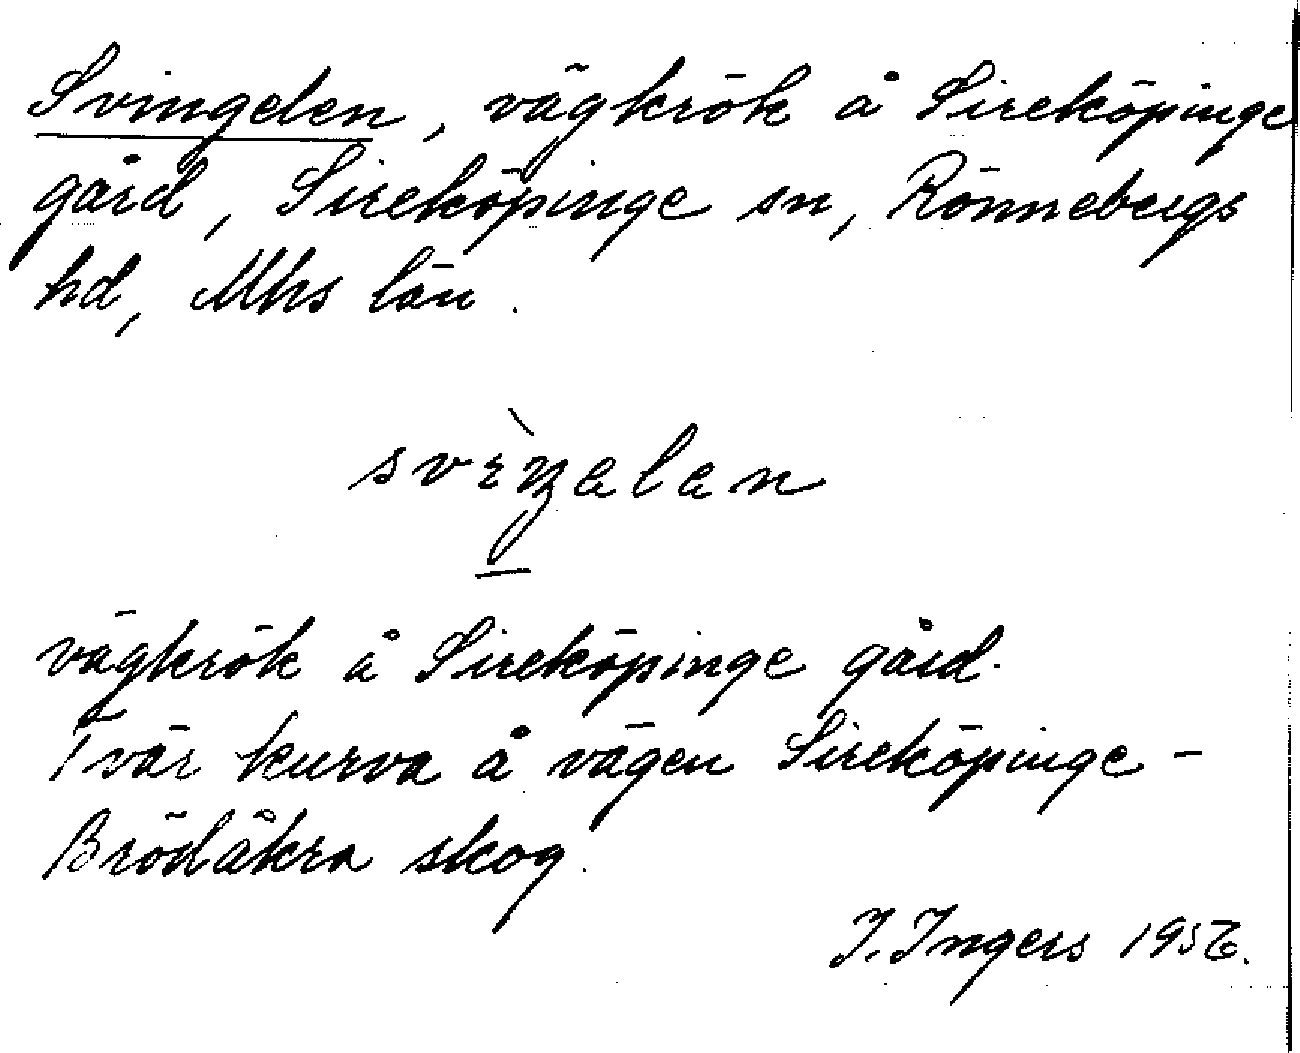 Svingelen, vägkrök å Sireköpinge
gård, Sireköpinge sn, Rönnebergs
hd, Mhs län.
svìŋəlan
vägkrök å Sireköpinge gård.
Tvär kurva å vägen Sireköpinge -
Brödåkra skog.
I. Ingers 1956.